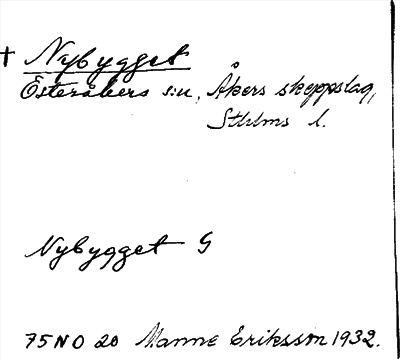 † Nybygget
Österåkers s:n, Åkers skeppslag,
Sthlms l.
Nybygget G
75 NO 20 Manne Eriksson 1932.